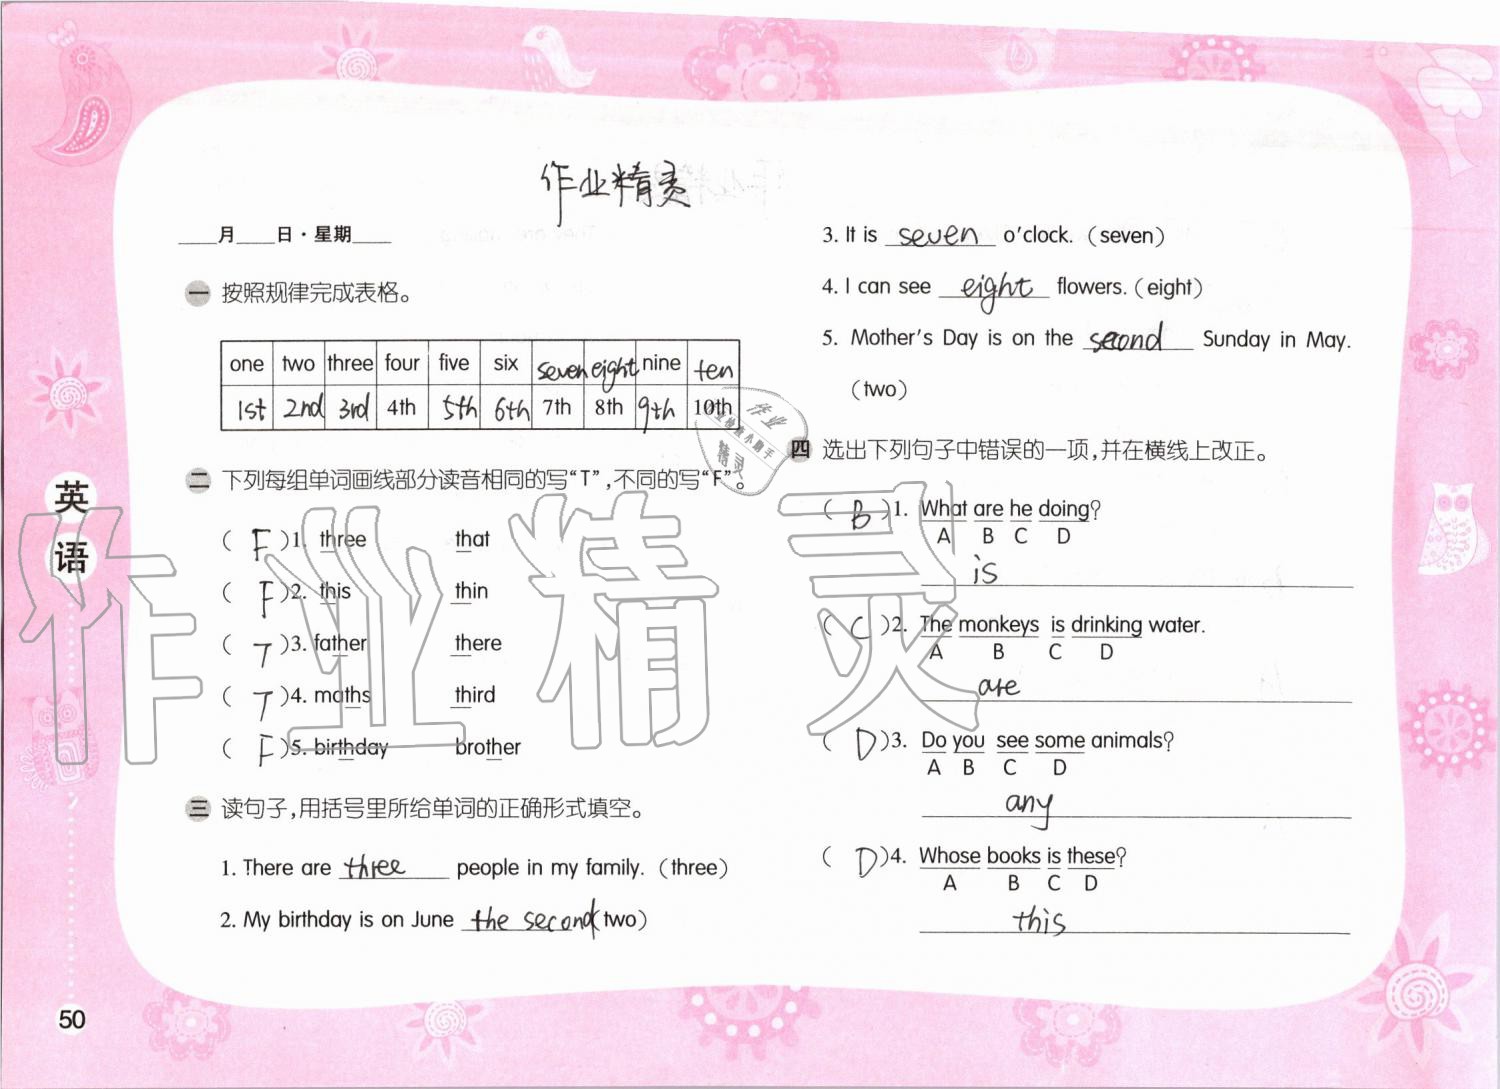 作业精灵
____月____日·星期____
一 按照规律完成表格。
one two three four five six seven eight nine ten
1st 2nd 3rd 4th 5th 6th 7th 8th 9th 10th
二 下列每组单词画线部分读音相同的写“T”,不同的写“F”。
( F )1. three that
( F )2. this thin
( T )3. father there
( T )4. maths third
( F )5. birthday brother
三 读句子,用括号里所给单词的正确形式填空。
1. There are three people in my family. (three)
2. My birthday is on June the second (two)
3. It is seven o'clock. (seven)
4. I can see eight flowers. (eight)
5. Mother's Day is on the second Sunday in May.
(two)
四 选出下列句子中错误的一项,并在横线上改正。
( B )1. What are he doing?
A B C D
is
( C )2. The monkeys is drinking water.
A B C D
are
( D )3. Do you see some animals?
A B C D
any
( D )4. Whose books is these?
A B C D
this
英语
50
作业精灵
作业
作业检查小助手
精灵